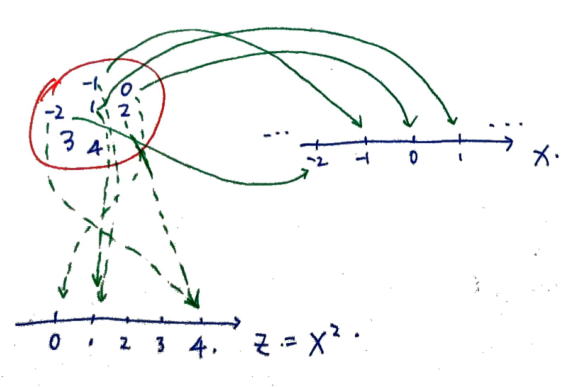 -1 0
-2 1 2
3 4
... -2 -1 0 1 ... X.
0 1 2 3 4. Z = X² .